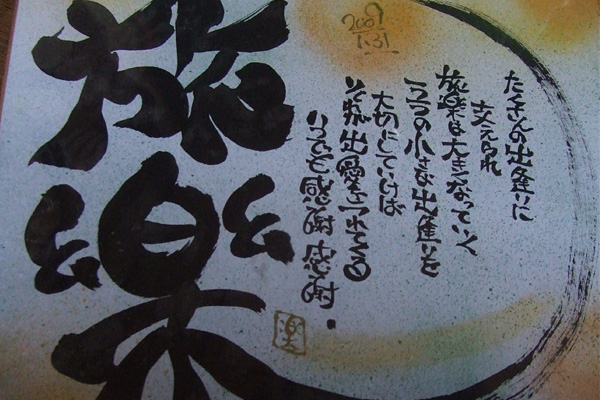 旅樂
2009
1.31
たくさんの出逢いに
支えられ
旅楽は大きくなっていく
一つ一つの小さな出逢いを
大切にしていけば
それが出愛をつれてくる
いつでも感謝 感謝.